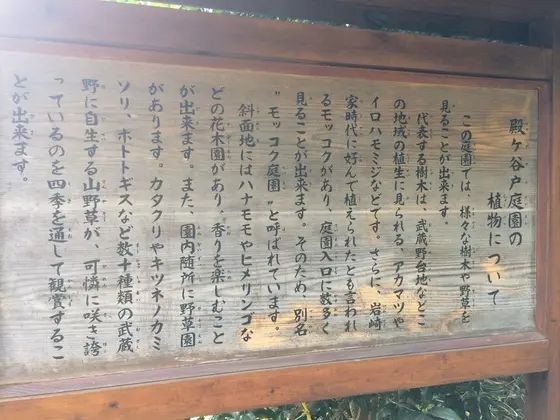 殿ヶ谷戸庭園の
植物について
この庭園では、様々な樹木や野草を
見ることが出来ます。
代表する樹木は、武蔵野台地などこ
の地域の植生に見られる、アカマツや
イロハモミジなどです。さらに、岩崎
家時代に好んで植えられたとも言われ
るモッコクがあり、庭園入口に数多く
見ることが出来ます。そのため、別名
"モッコク庭園"と呼ばれています。
斜面地にはハナモモやヒメリンゴな
どの花木園があり、香りを楽しむこと
が出来ます。また、園内随所に野草園
があります。カタクリやキツネノカミ
ソリ、ホトトギスなど数十種類の武蔵
野に自生する山野草が、可憐に咲き誇
っているのを四季を通して観賞するこ
とが出来ます。